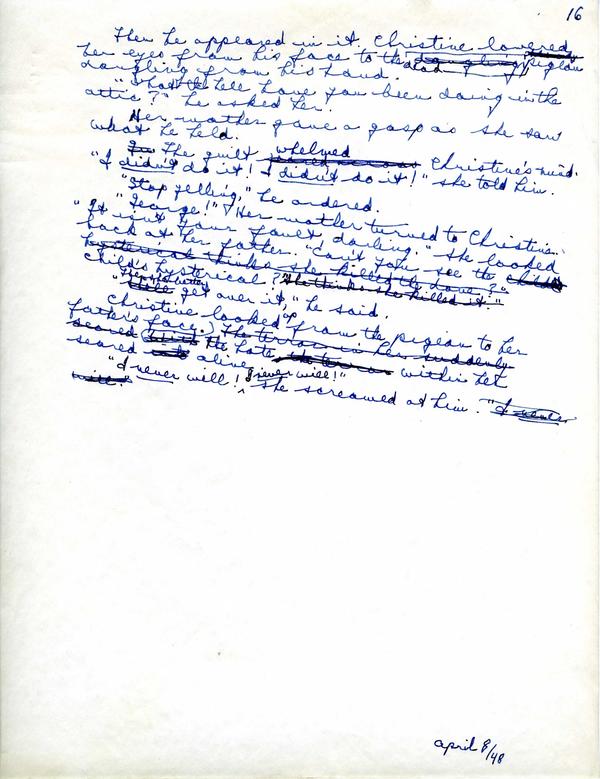 16
Then he appeared in it. Christine lowered
her eyes from his face to the dead pigeon
dangling from his hand.
"What the hell have you been doing in the
attic?" he asked her.
Her mother gave a gasp as she saw
what he held.
The guilt whelmed Christine's mind.
"I didn't do it! I didn't do it!" she told him.
"Stop yelling," he ordered.
"George!" Her mother turned to Christine.
"It isn't your fault, darling." She looked
back at her father. "Can't you see the
hysterical thinks she killed the dove?"
child's hysterical? She thinks she killed it."
get over it," he said.
Christine looked up from the pigeon to her
father's face. The terror in her suddenly
seared the hate within her
seared alive.
"I never will! I never will!"
she screamed at him. "I never
will!"
april 8/48